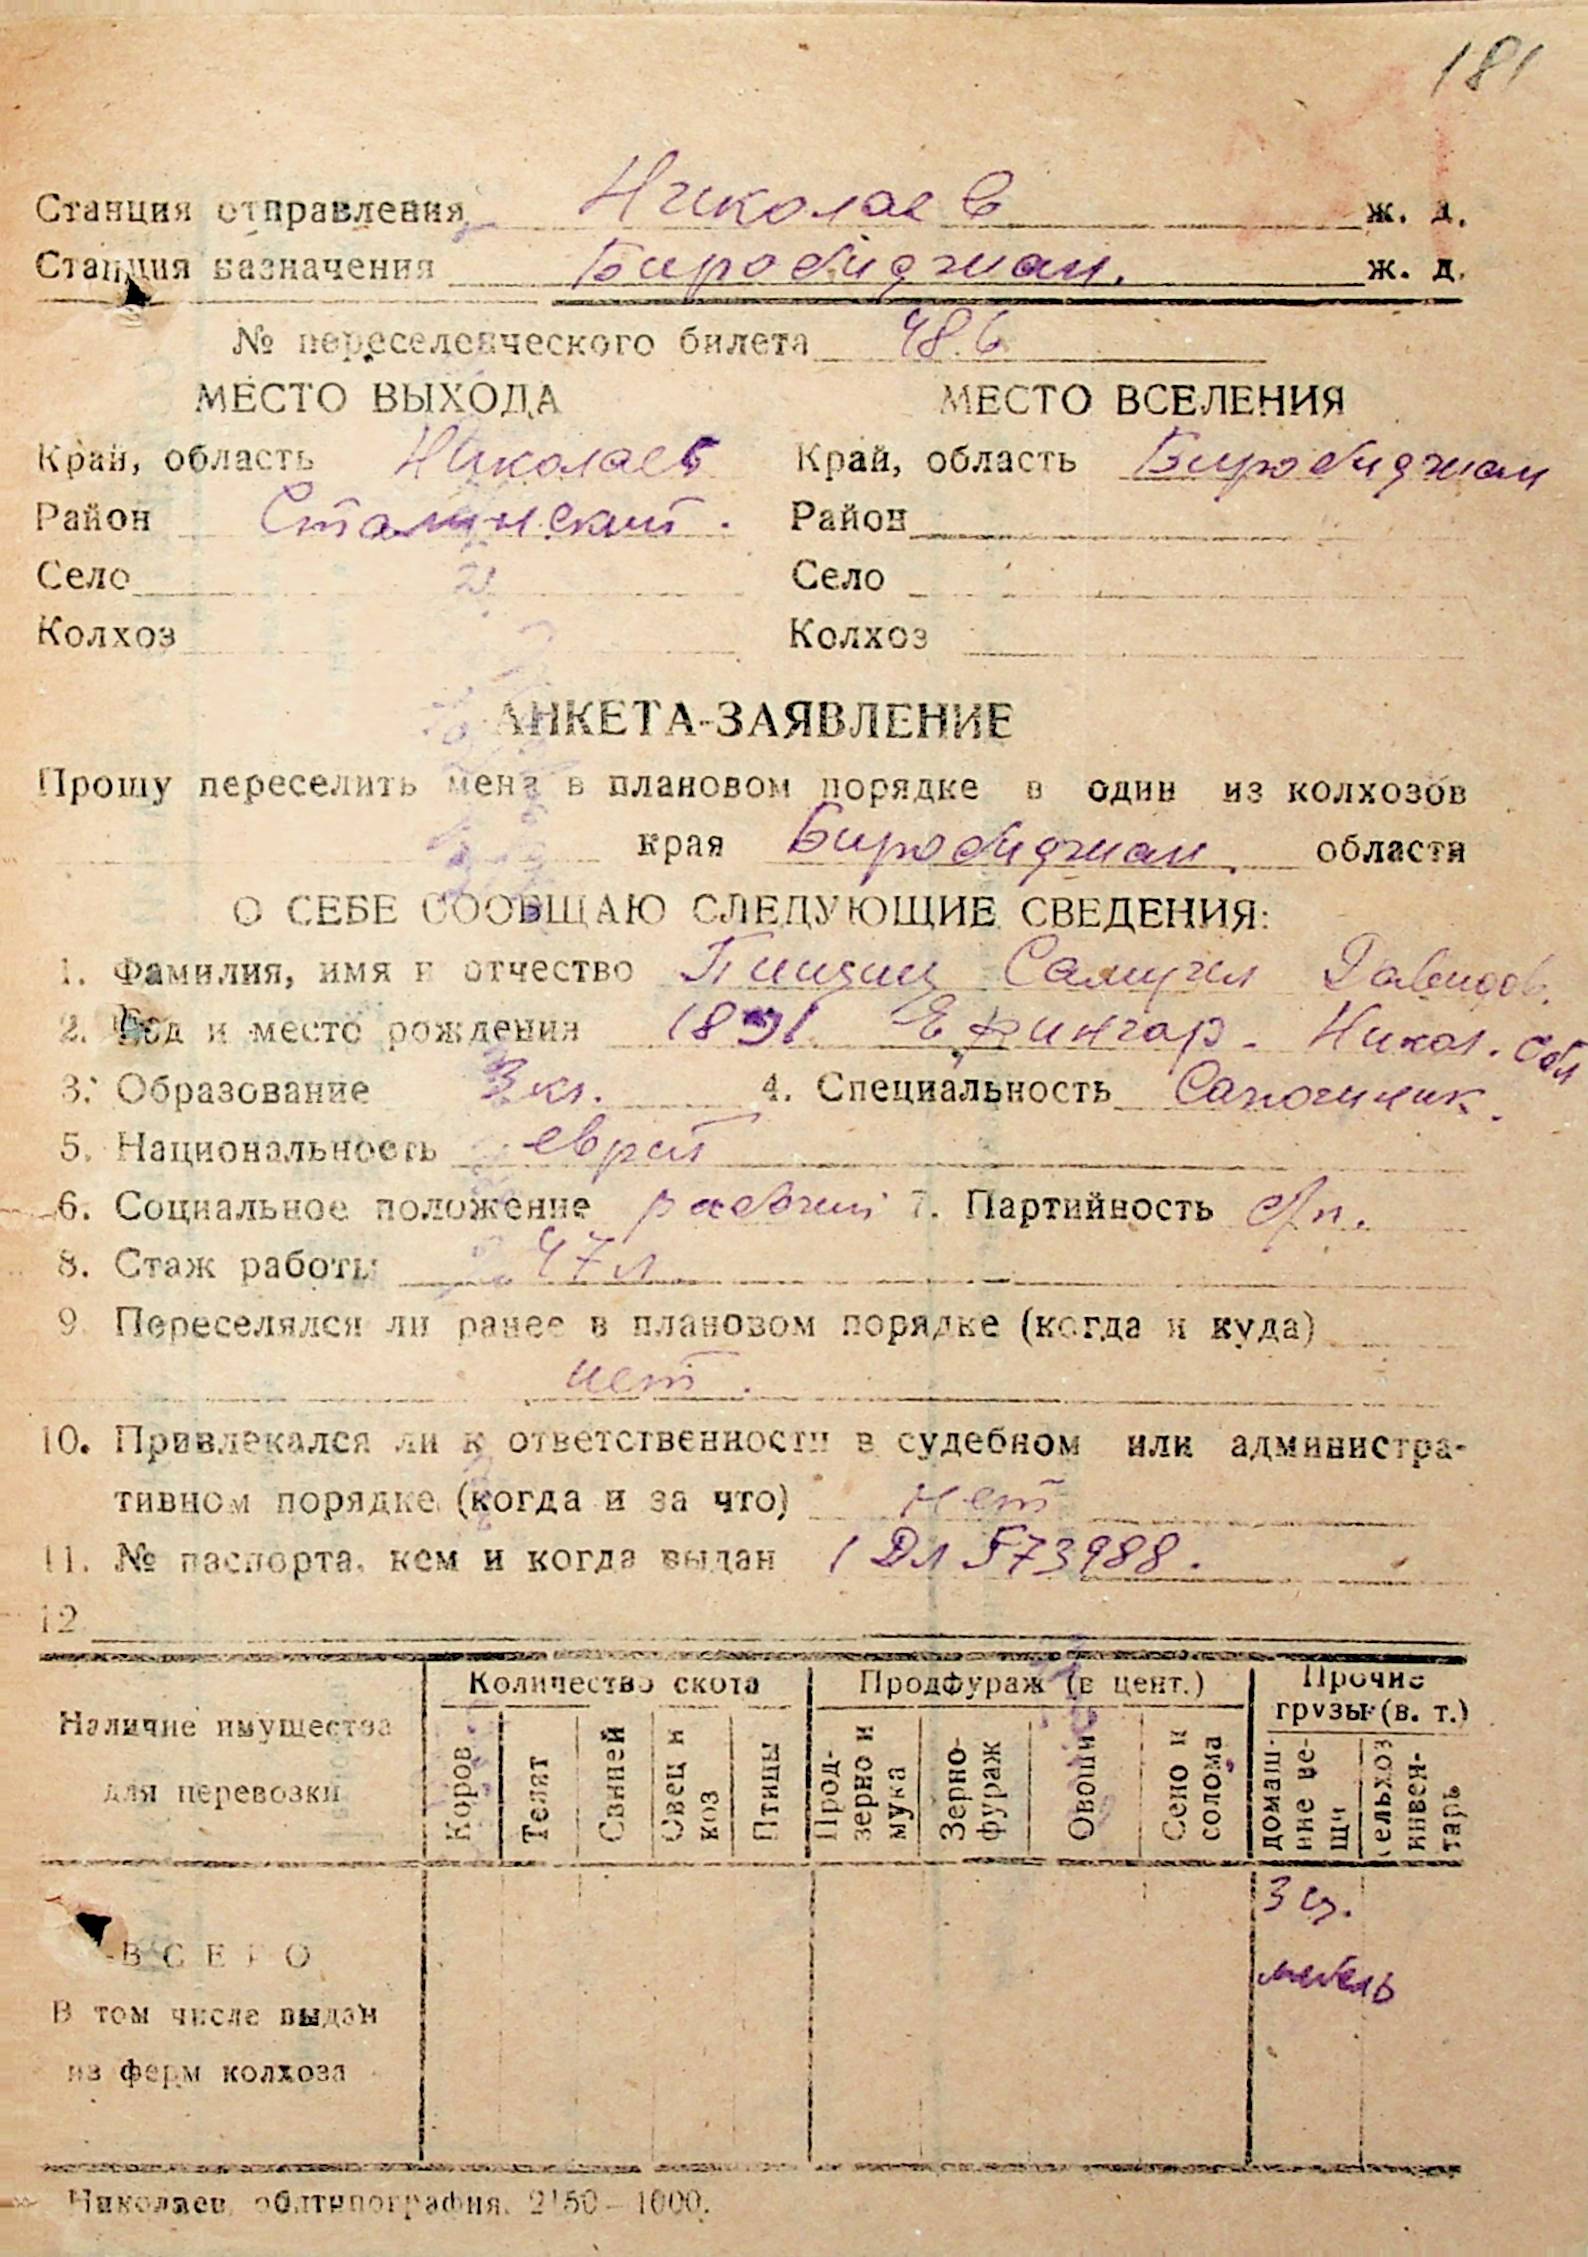 181
Станция отправления Николаев ж. д.
Станция назначения Биробиджан. ж. д.
№ переселенческого билета 486
МЕСТО ВЫХОДА МЕСТО ВСЕЛЕНИЯ
Край, область Николаев Край, область Биробиджан
Район Сталинский. Район
Село Село
Колхоз Колхоз
АНКЕТА-ЗАЯВЛЕНИЕ
Прошу переселить меня в плановом порядке в один из колхозов
края Биробиджан области
О СЕБЕ СООБЩАЮ СЛЕДУЮЩИЕ СВЕДЕНИЯ:
1. Фамилия, имя и отчество Самуил Давидов.
2. Год и место рождения 1891 Ефингар. Никол. обл
3. Образование 3 кл. 4. Специальность Сапожник.
5. Национальность еврей
6. Социальное положение рабочий 7. Партийность б/п.
8. Стаж работы 47 л.
9. Переселялся ли ранее в плановом порядке (когда и куда)
нет.
10. Привлекался ли к ответственности в судебном или администра-
тивном порядке (когда и за что) нет
11. № паспорта, кем и когда выдан 1 ДЛ 573988.
12
Количество скота Продфураж (в цент.) Прочие
грузы (в. т.)
Наличие имущества
для перевозки
Коров Телят Свиней Овец и коз Птицы Прод-зерно и мука Зерно-фураж Овощи Сено и солома домаш-ние ве-щи сельхоз инвен-тарь
3 ц.
ВСЕГО
мебель
В том числе выдан
из ферм колхоза
Николаев, облтипография. 2150—1000.